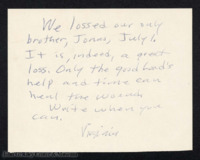 We lossed our only
brother, Jonas, July 1.
It is, indeed, a great
loss. Only the good Lord's
help and time can
heal the wound.
Write when you
can.
Virginia